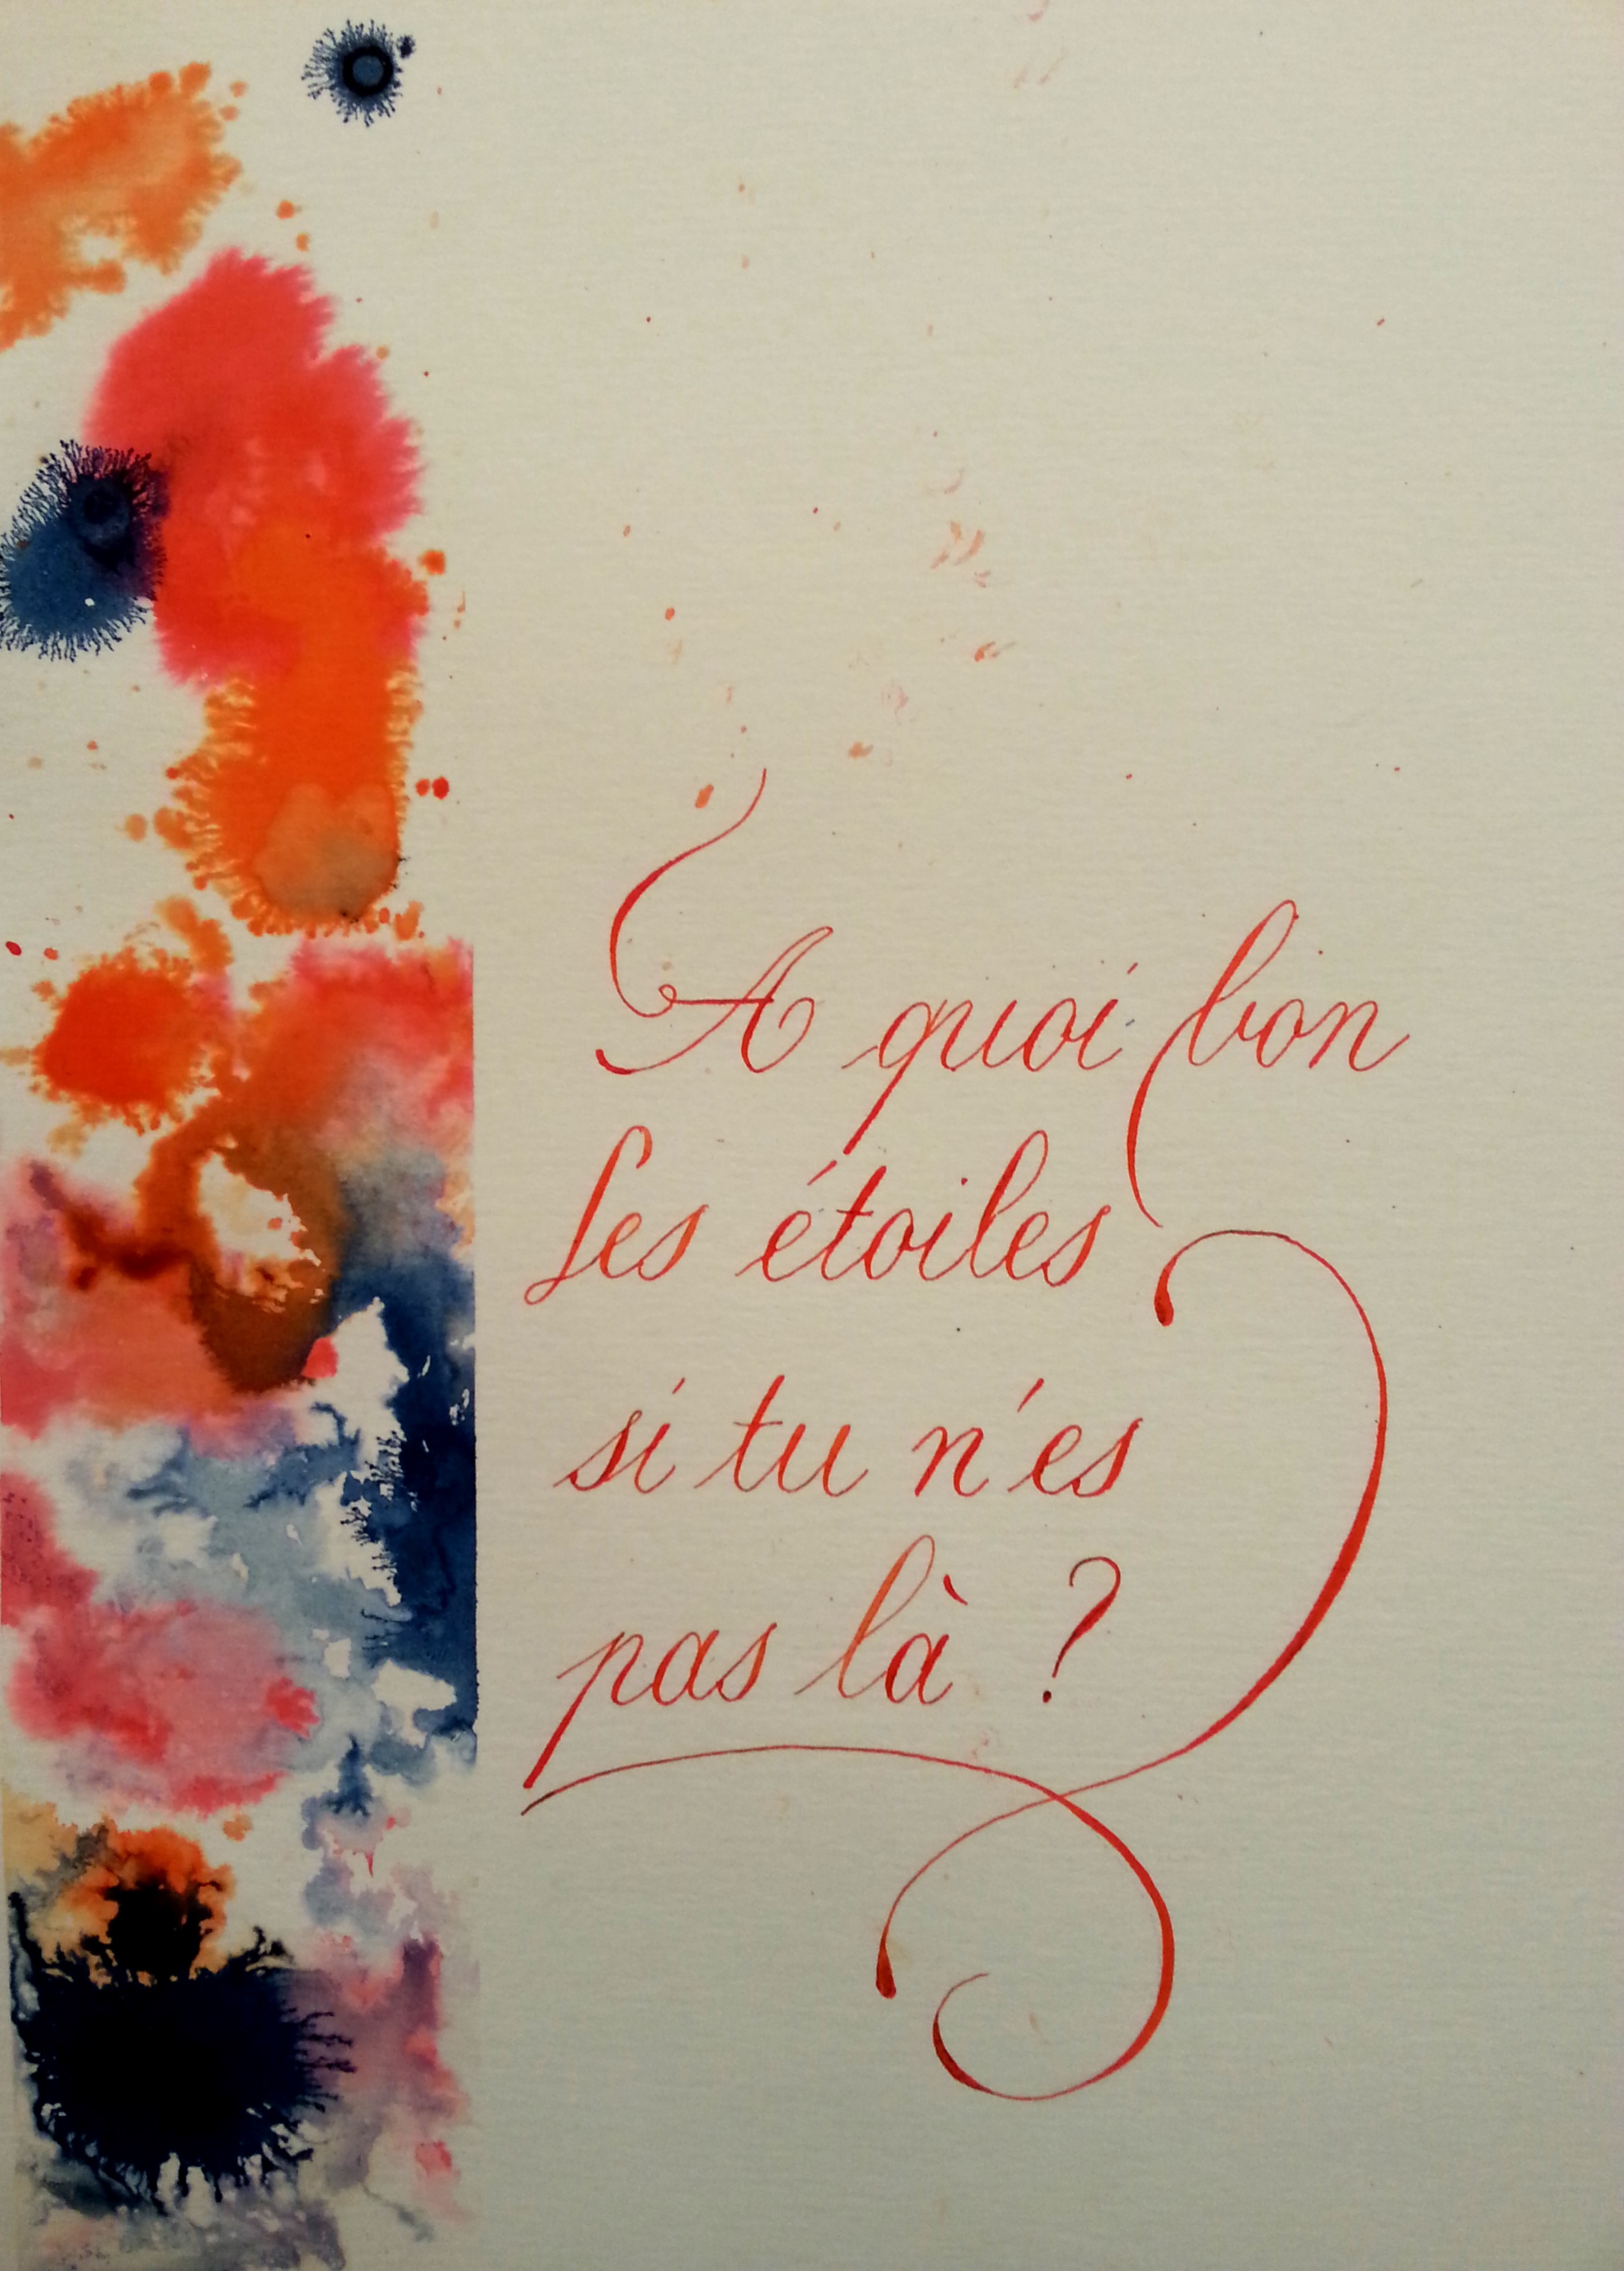 A quoi bon
les étoiles
si tu n'es
pas là ?